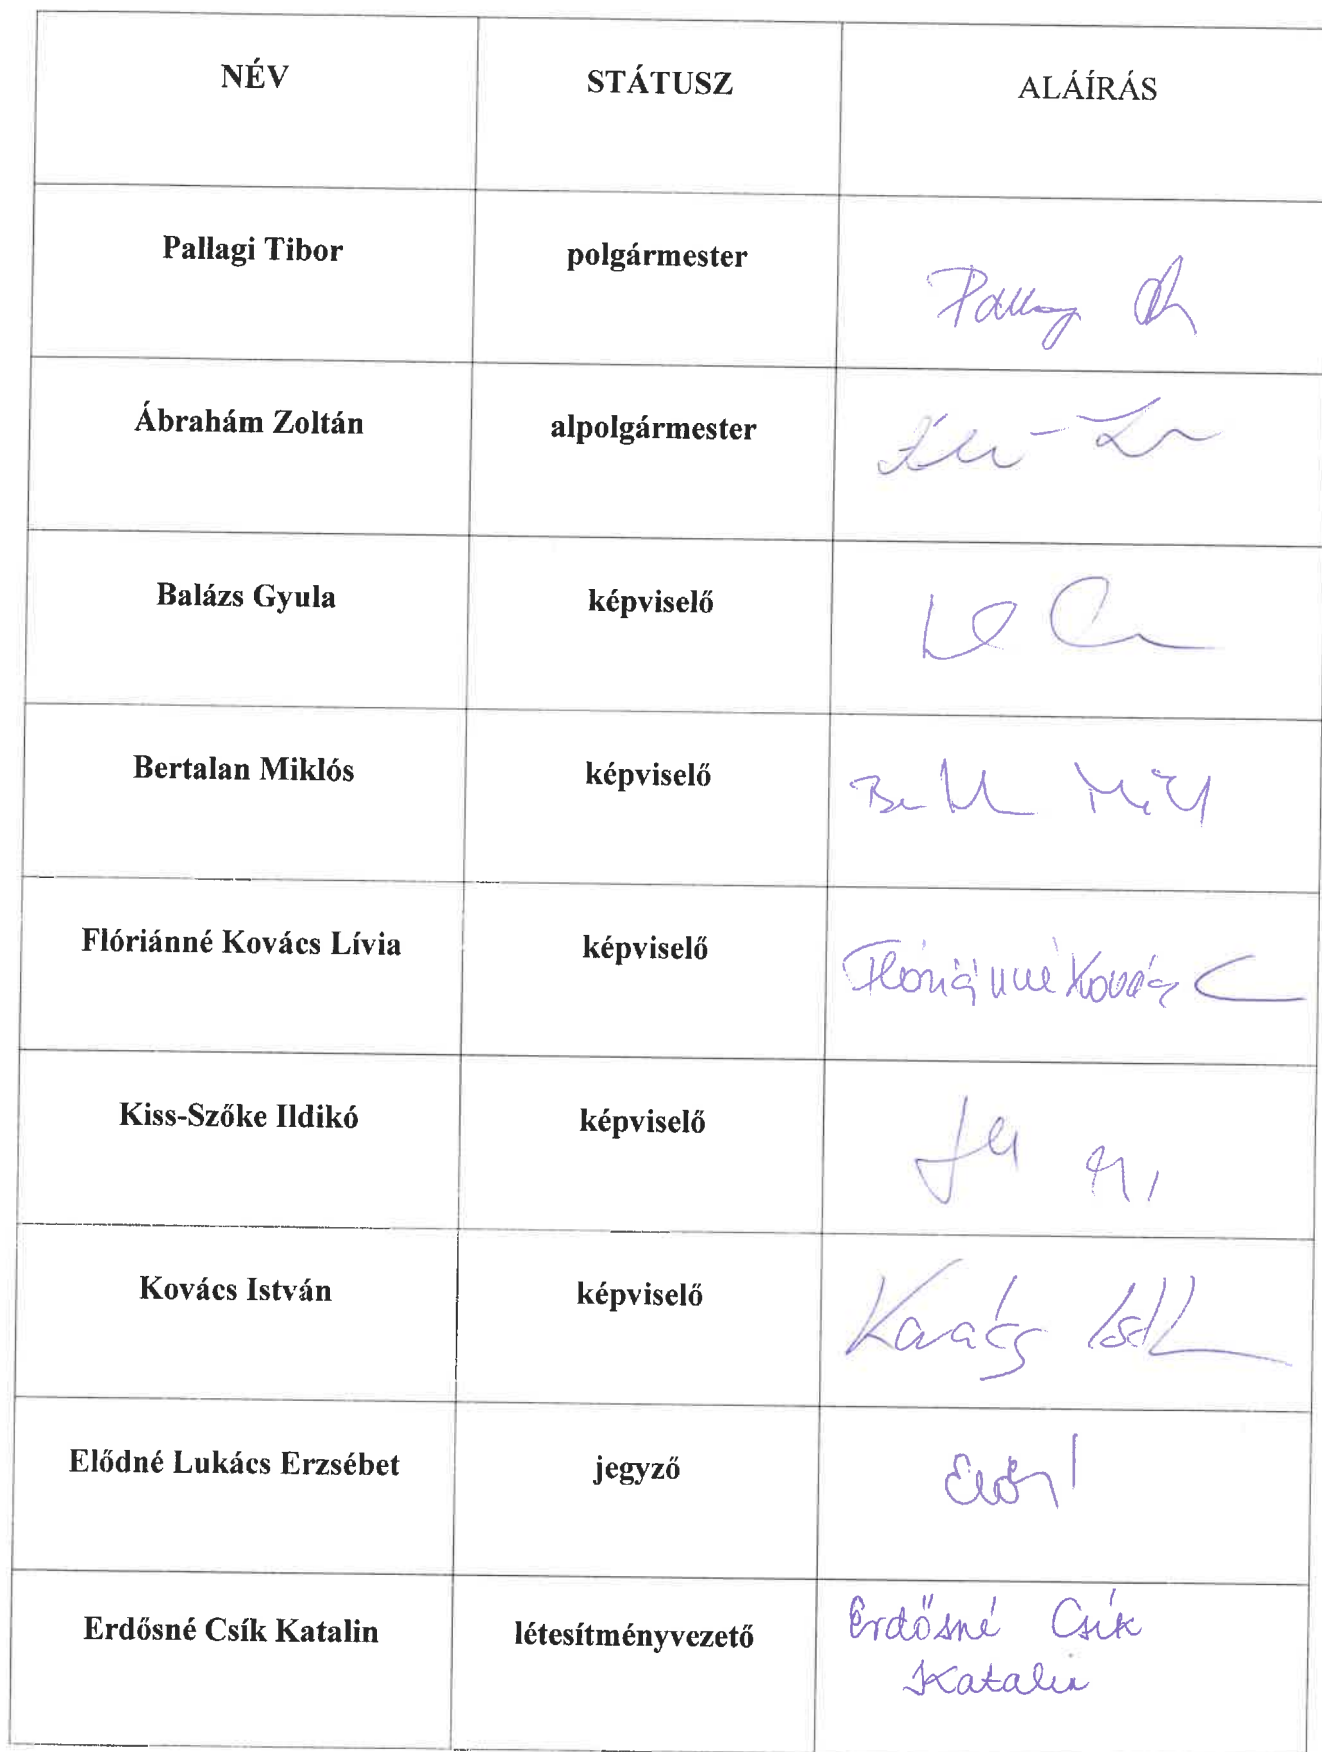 NÉV STÁTUSZ ALÁÍRÁS
Pallagi Tibor polgármester
Ábrahám Zoltán alpolgármester
Balázs Gyula képviselő
Bertalan Miklós képviselő
Flóriánné Kovács Lívia képviselő Flóriánné Kovács
Kiss-Szőke Ildikó képviselő
Kovács István képviselő Kovács
Elődné Lukács Erzsébet jegyző
Erdősné Csík Katalin létesítményvezető Erdősné Csík
Katalin